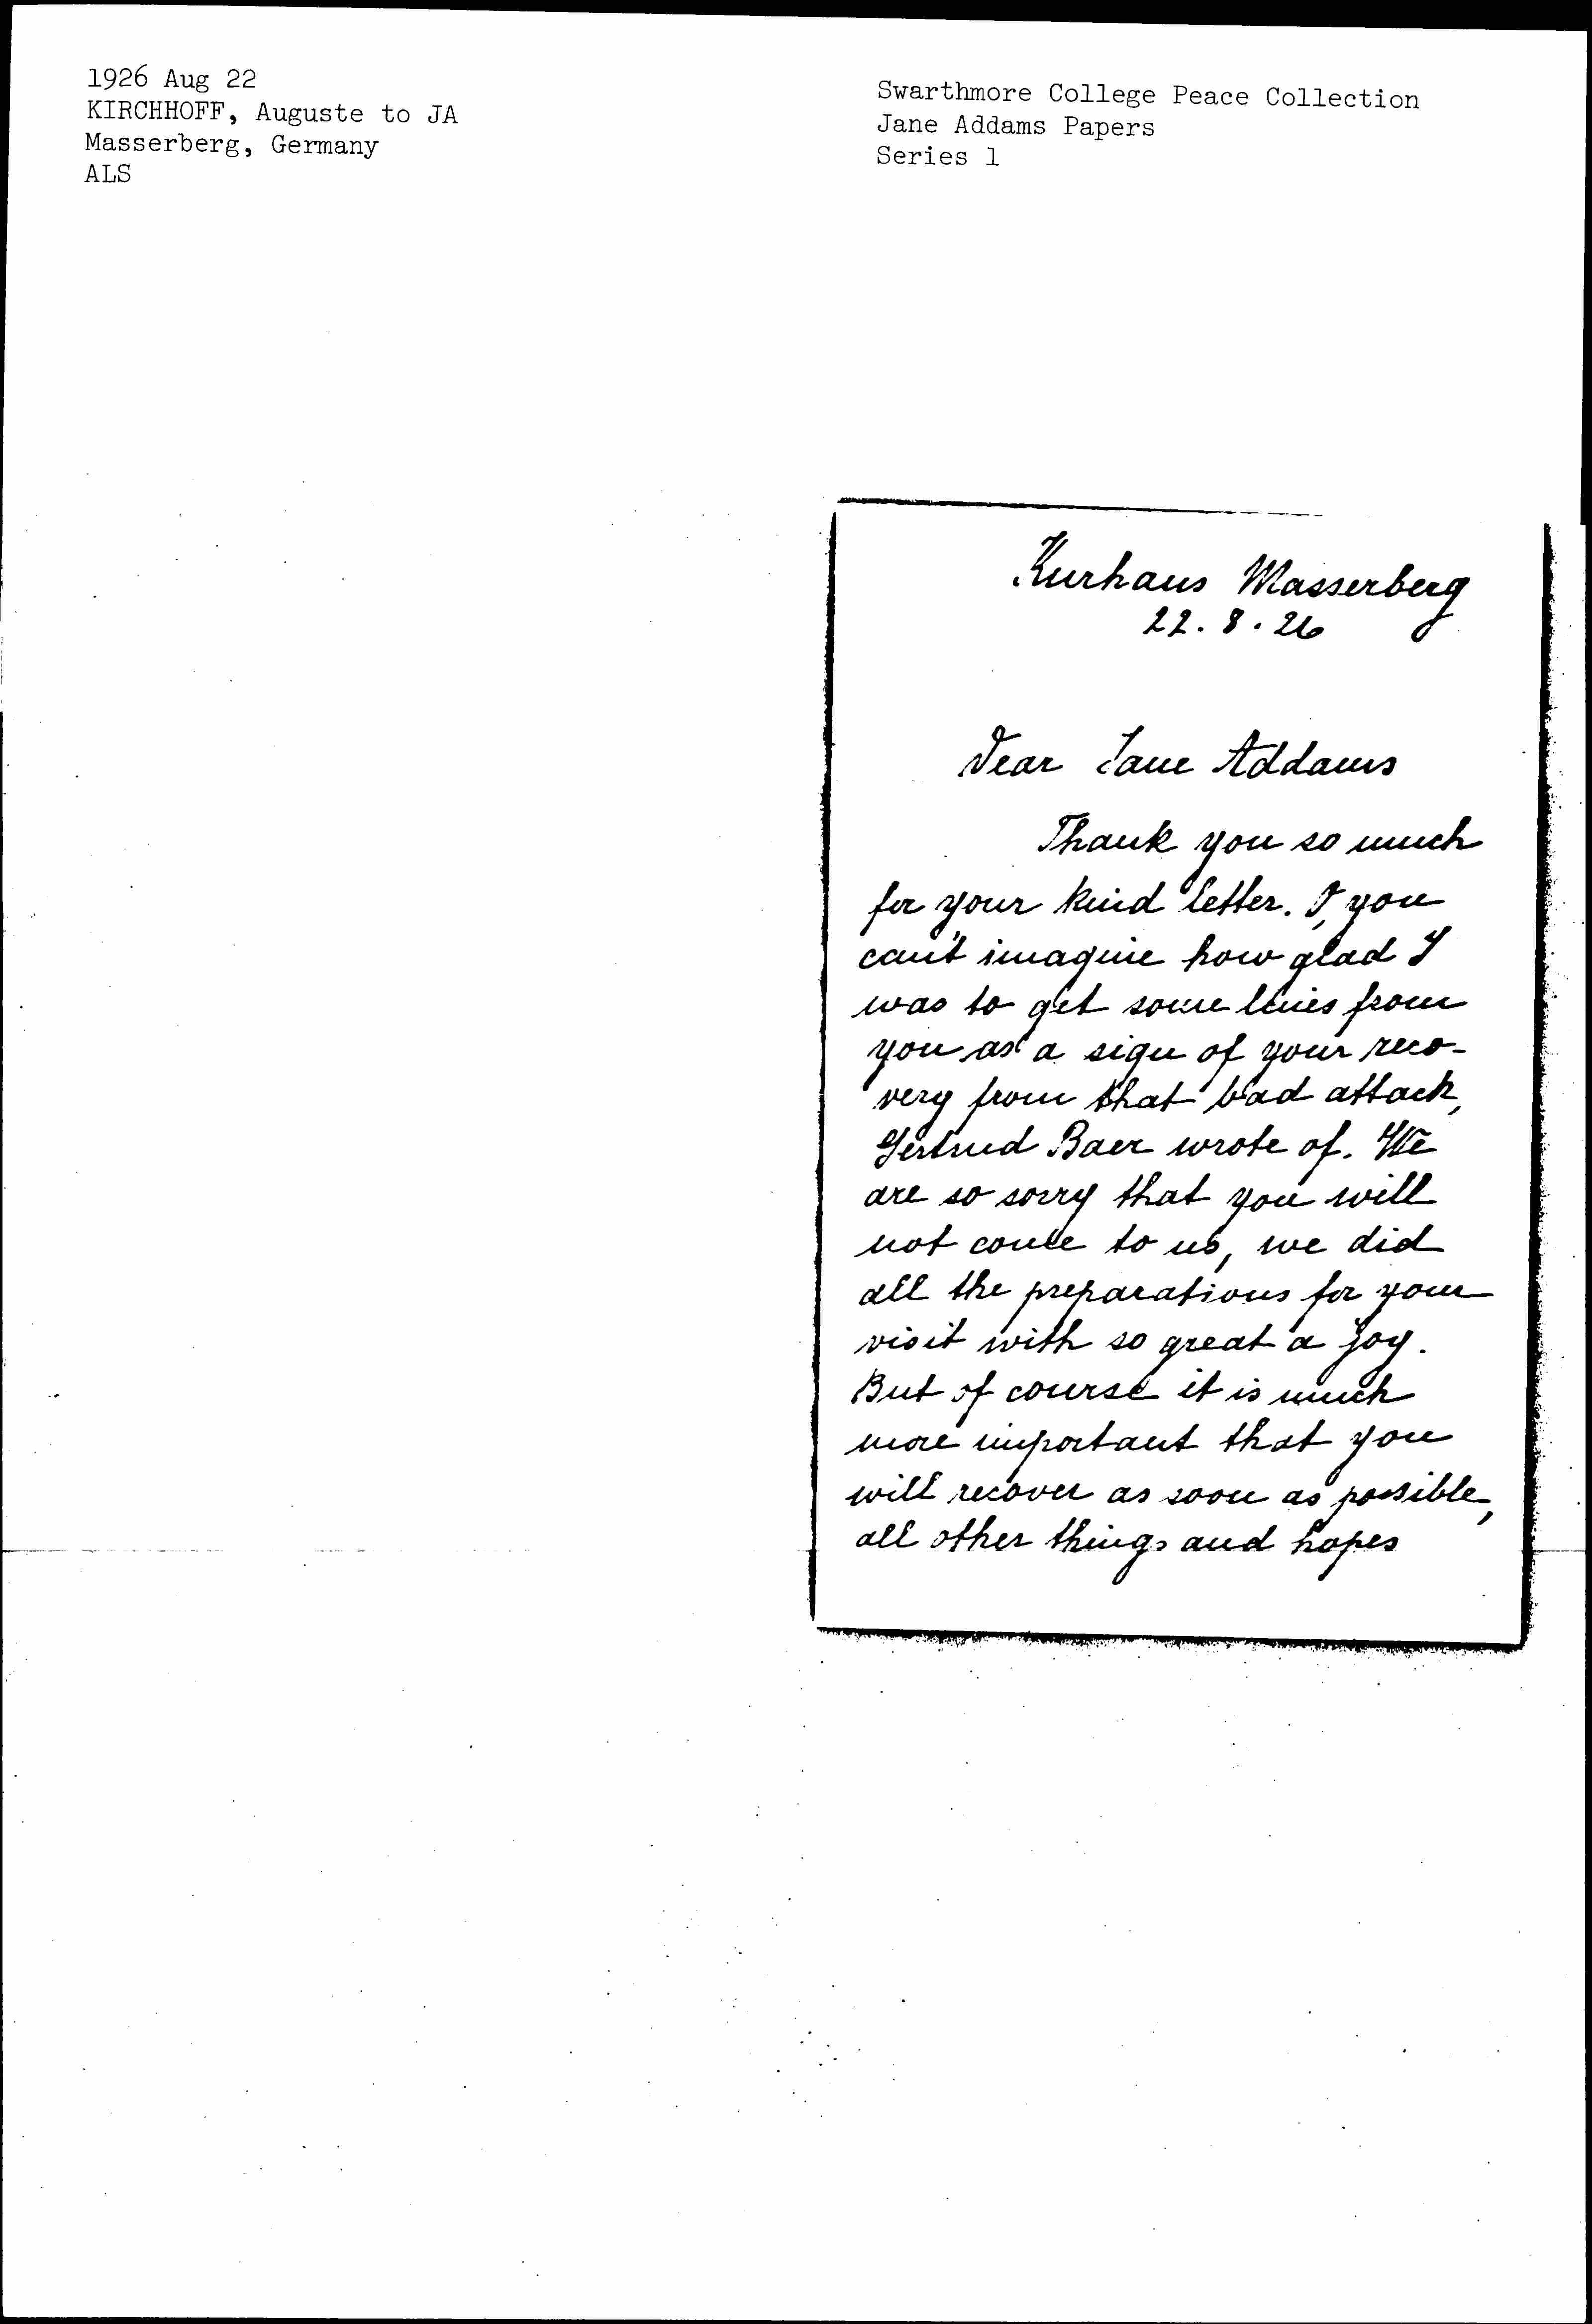 1926 Aug 22
KIRCHHOFF, Auguste to JA
Masserberg, Germany
ALS
Swarthmore College Peace Collection
Jane Addams Papers
Series 1
Kurhaus Masserberg
22. 8. 26
Dear Jane Addams
Thank you so much
for your kind letter. O, you
can't imagine how glad I
was to get some lines from
you as a sign of your reco-
very from that bad attack,
Gertrud Baer wrote of. We
are so sorry that you will
not come to us, we did
all the preparations for your
visit with so great a joy.
But of course it is much
more important that you
will recover as soon as possible,
all other things and hopes